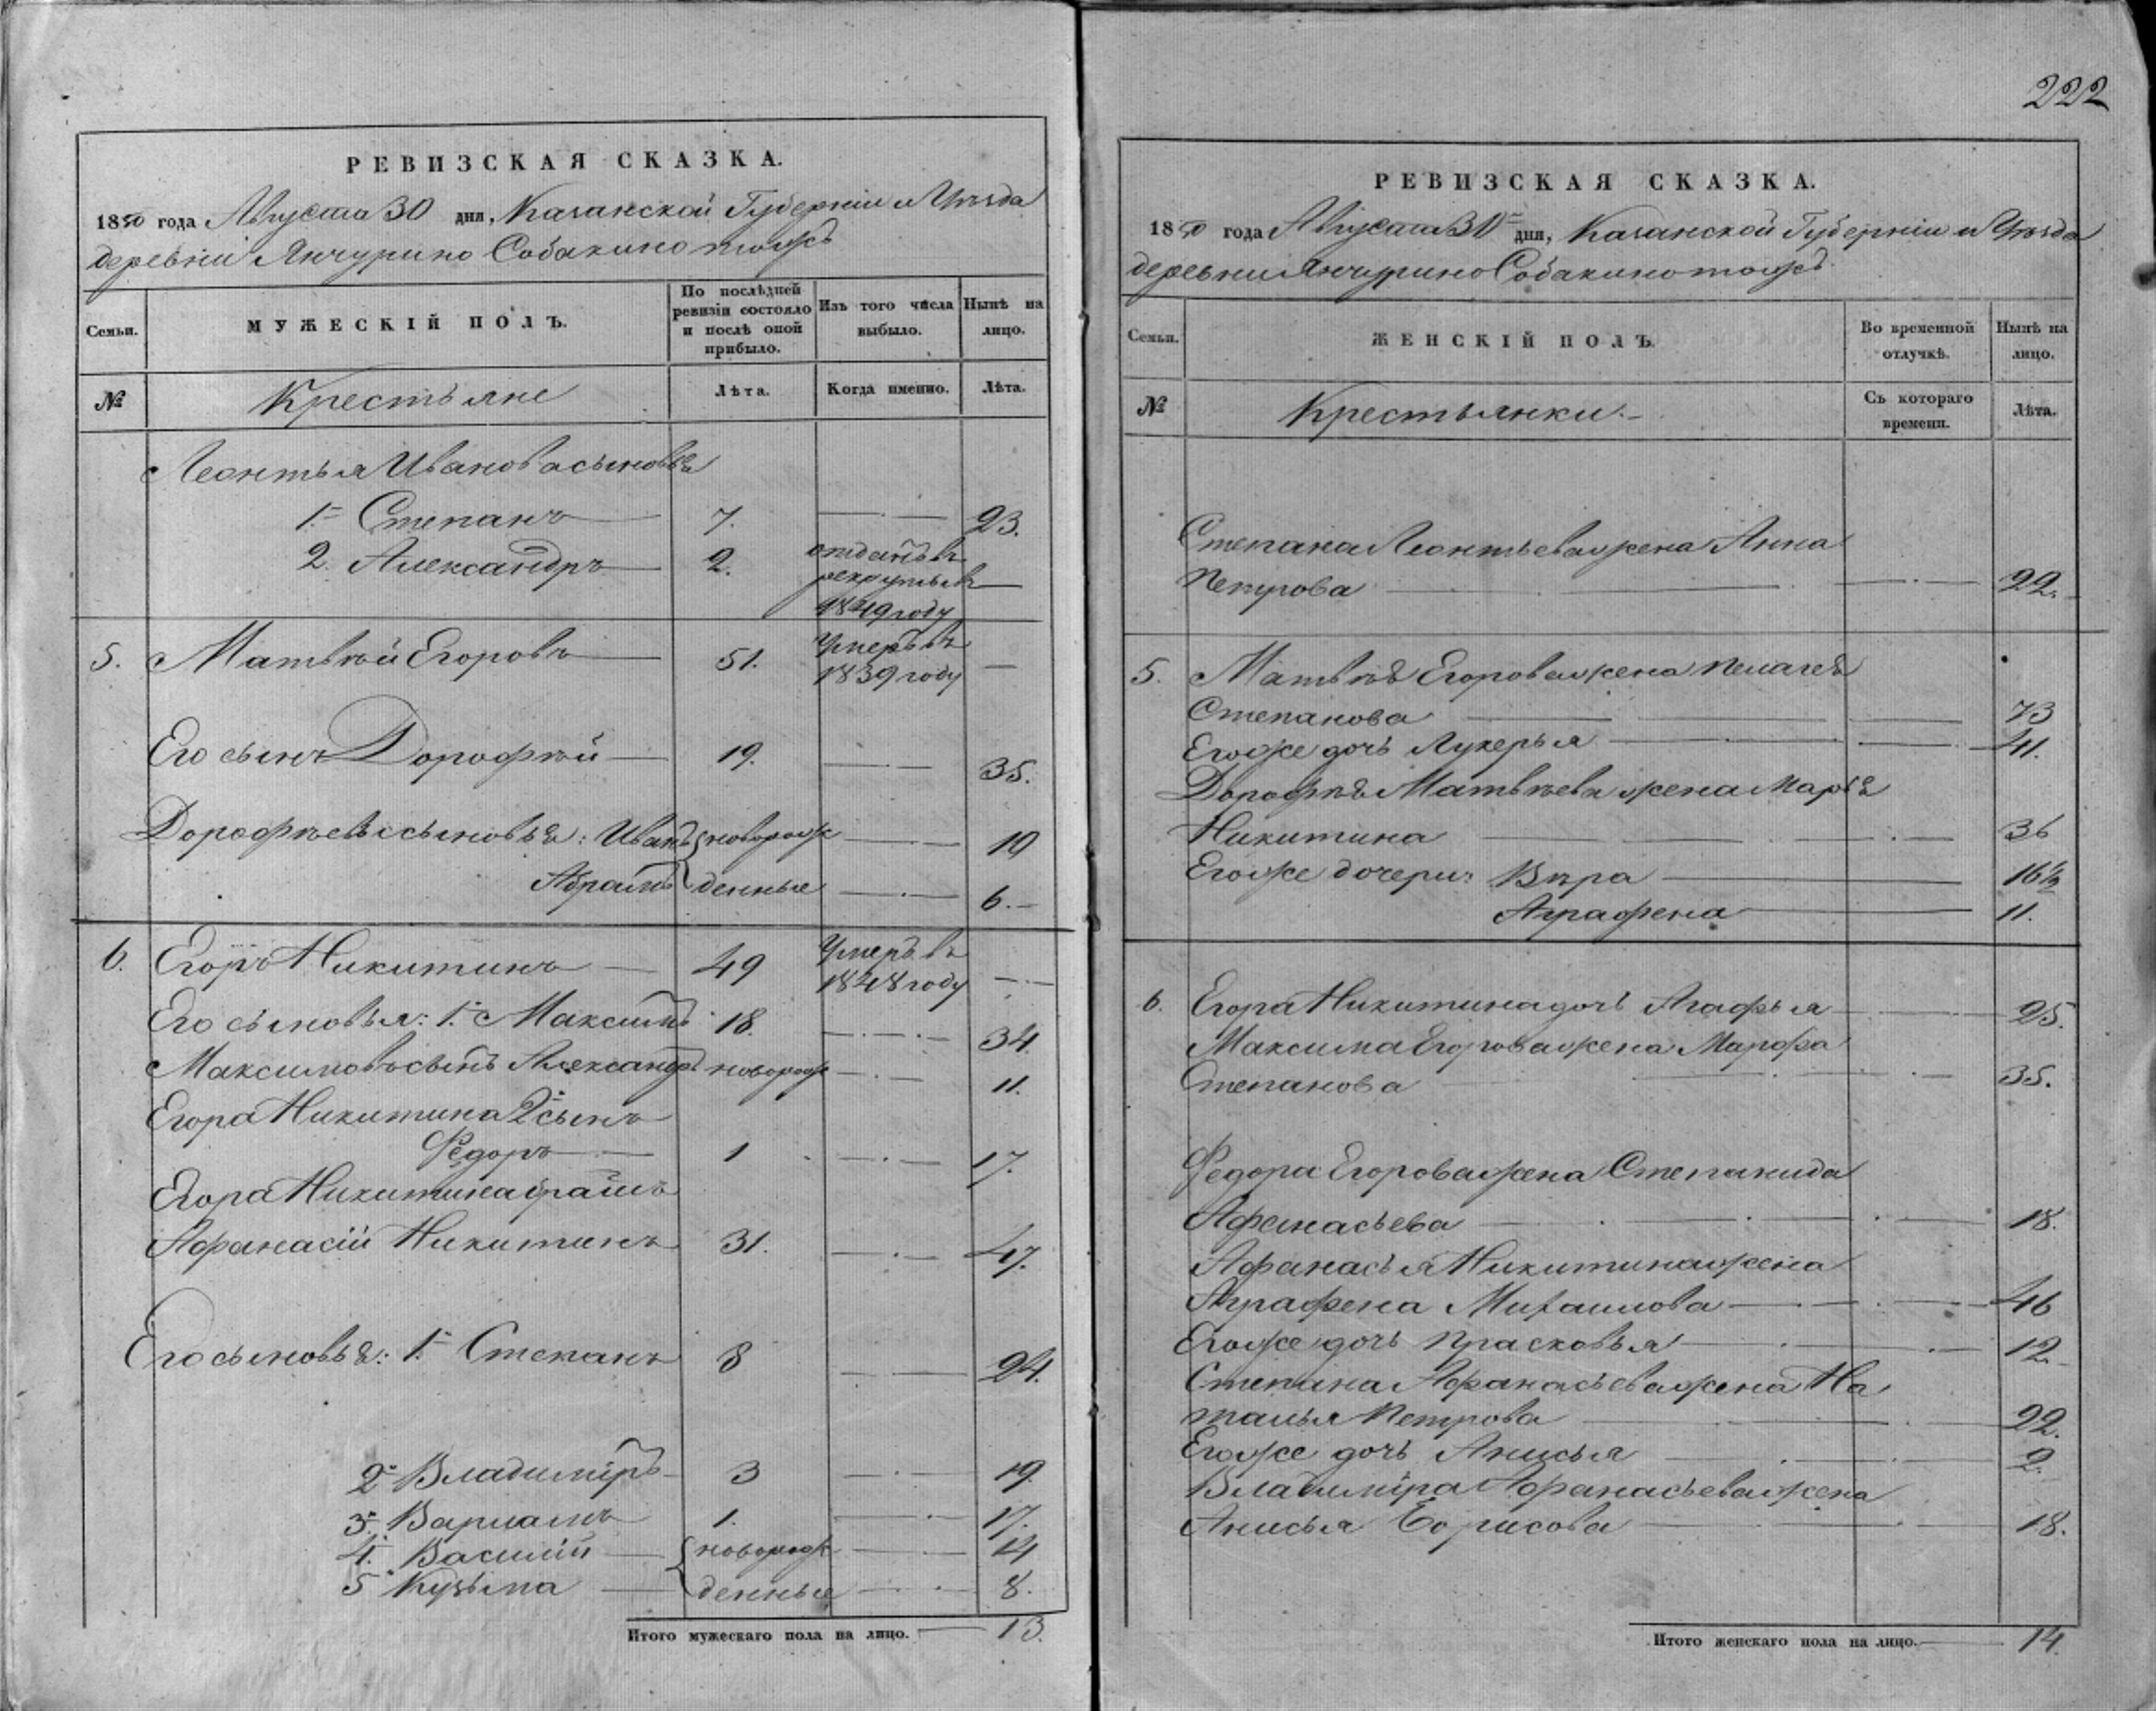 РЕВИЗСКАЯ СКАЗКА.
1850 года Августа 30 дня, Казанской Губерніи и Уѣзда
деревни Янчурино Собакино тожъ
Семьи. МУЖЕСКІЙ ПОЛЪ. По послѣдней ревизіи состояло и послѣ оной прибыло. Изъ того числа выбыло. Нынѣ на лицо.
№ Крестьяне Лѣта. Когда именно. Лѣта.
Леонтья Иванова сыновья
1. Степанъ 7. 23.
2. Александръ 2. отданъ въ рекруты въ 1849 году
5. Матвѣй Егоровъ 51. Умеръ въ 1839 году
Его сынъ Дорофѣй 19. 35.
Дорофѣевы сыновья: Иванъ новорож 19
Абрамъ денные 6.
6. Егоръ Никитинъ 49 Умеръ въ 1848 году
Его сыновья: 1. Максимъ 18. 34.
Максимовъ сынъ Александръ новорож 11.
Егора Никитина 2 сынъ
Федоръ 1 17.
Егора Никитина братъ
Афанасій Никитинъ 31. 47.
Его сыновья: 1. Степанъ 8 24.
2 Владиміръ 3 19.
3 Варламъ 1. 17.
4. Василій новорож 14
5 Кузьма денные 8.
Итого мужескаго пола на лицо. 13.
222
РЕВИЗСКАЯ СКАЗКА.
1850 года Августа 30 дня, Казанской Губерніи и Уѣзда
деревни Янчурино Собакино тожъ.
Семьи. ЖЕНСКІЙ ПОЛЪ. Во временной отлучкѣ. Нынѣ на лицо.
№ Крестьянки. Съ котораго времени. Лѣта.
Степана Леонтьева жена Анна
Петрова 22.
5. Матвѣя Егорова жена Пелагея
Степанова 73
Егоже дочь Лукерья 41.
Дорофѣя Матвѣева жена Марья
Никитина 36
Егоже дочери: Вѣра 16½
Аграфена 11.
6. Егора Никитина дочь Агафья 25.
Максима Егорова жена Марфа
Степанова 35.
Федора Егорова жена Степанида
Афанасьева 18.
Афанасья Никитина жена
Аграфена Михаилова 46
Егоже дочь Прасковья 12.
Степана Афанасьева жена На
талья Петрова 22.
Егоже дочь Анисья 2.
Владиміра Афанасьева жена
Анисья Борисова 18.
Итого женскаго пола на лицо. 14.